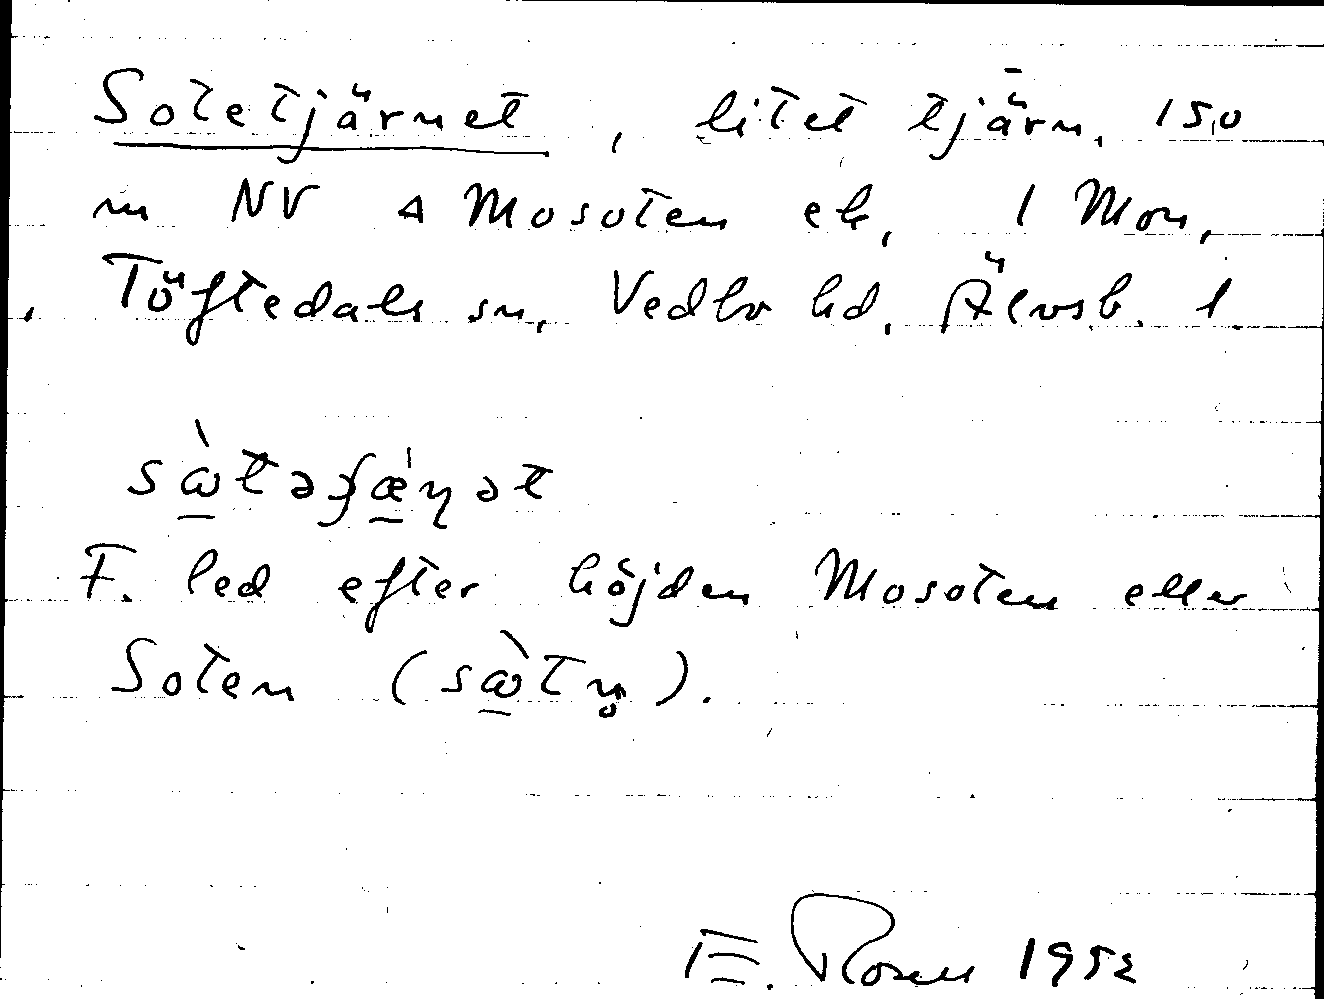 Sotetjärnet, litet tjärn, 150
m NV Δ Mosoten ek, 1 Mon,
Töftedals sn, Vedbo hd, Älvsb. l.
sὼtəʃæ̀ɳət
F. led efter höjden Mosoten eller
Soten (sὼtn̥).
E. Rosell 1952